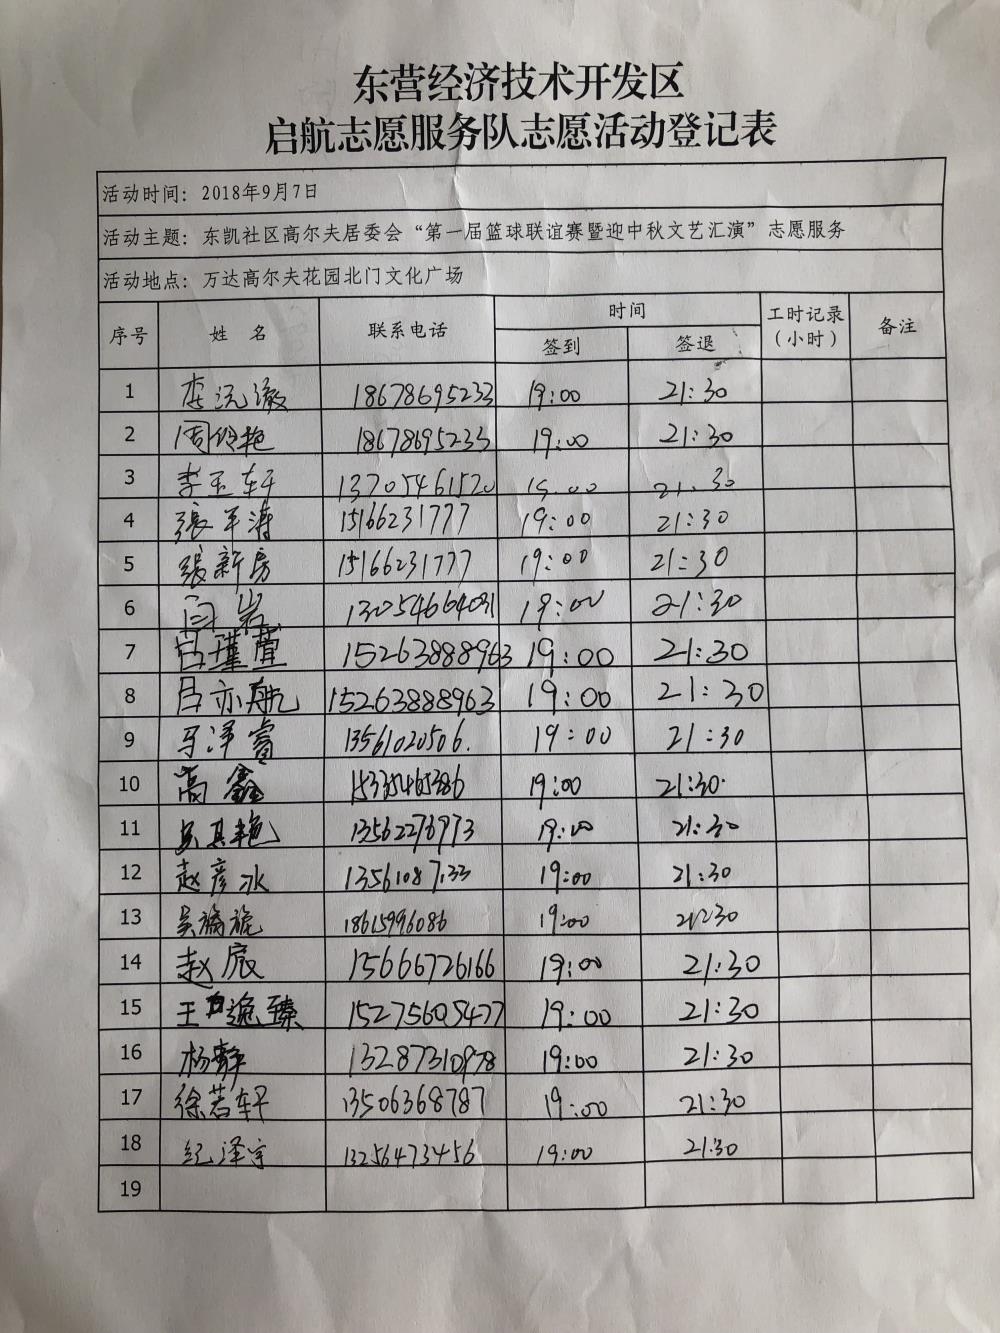 东营经济技术开发区
启航志愿服务队志愿活动登记表
活动时间：2018年9月7日
活动主题：东凯社区高尔夫居委会“第一届篮球联谊赛暨迎中秋文艺汇演”志愿服务
活动地点：万达高尔夫花园北门文化广场
序号 姓 名 联系电话 时间 签到 签退 工时记录（小时） 备注
1 李沅澈 18678695233 19:00 21:30
2 周玲艳 18678695233 19:00 21:30
3 李玉轩 13705461520 19:00 21:30
4 張军涛 15166231777 19:00 21:30
5 張新房 15166231777 19:00 21:30
6 闫岩 13054664031 19:00 21:30
7 吕瑾萱 15263888963 19:00 21:30
8 吕亦航 15263888963 19:00 21:30
9 马泽睿 13561020506. 19:00 21:30
10 高鑫 15335465386 19:00 21:30
11 13562276973 19:00 21:30
12 赵彦冰 19:00 21:30
13 吴 18615996086 19:00 21:30
14 赵宸 15666726166 19:00 21:30
15 王逸臻 15275605477 19:00 21:30
16 杨静 13287310978 19:00 21:30
17 徐若轩 13506368787 19:00 21:30
18 纪泽宇 13256473456 19:00 21:30
19